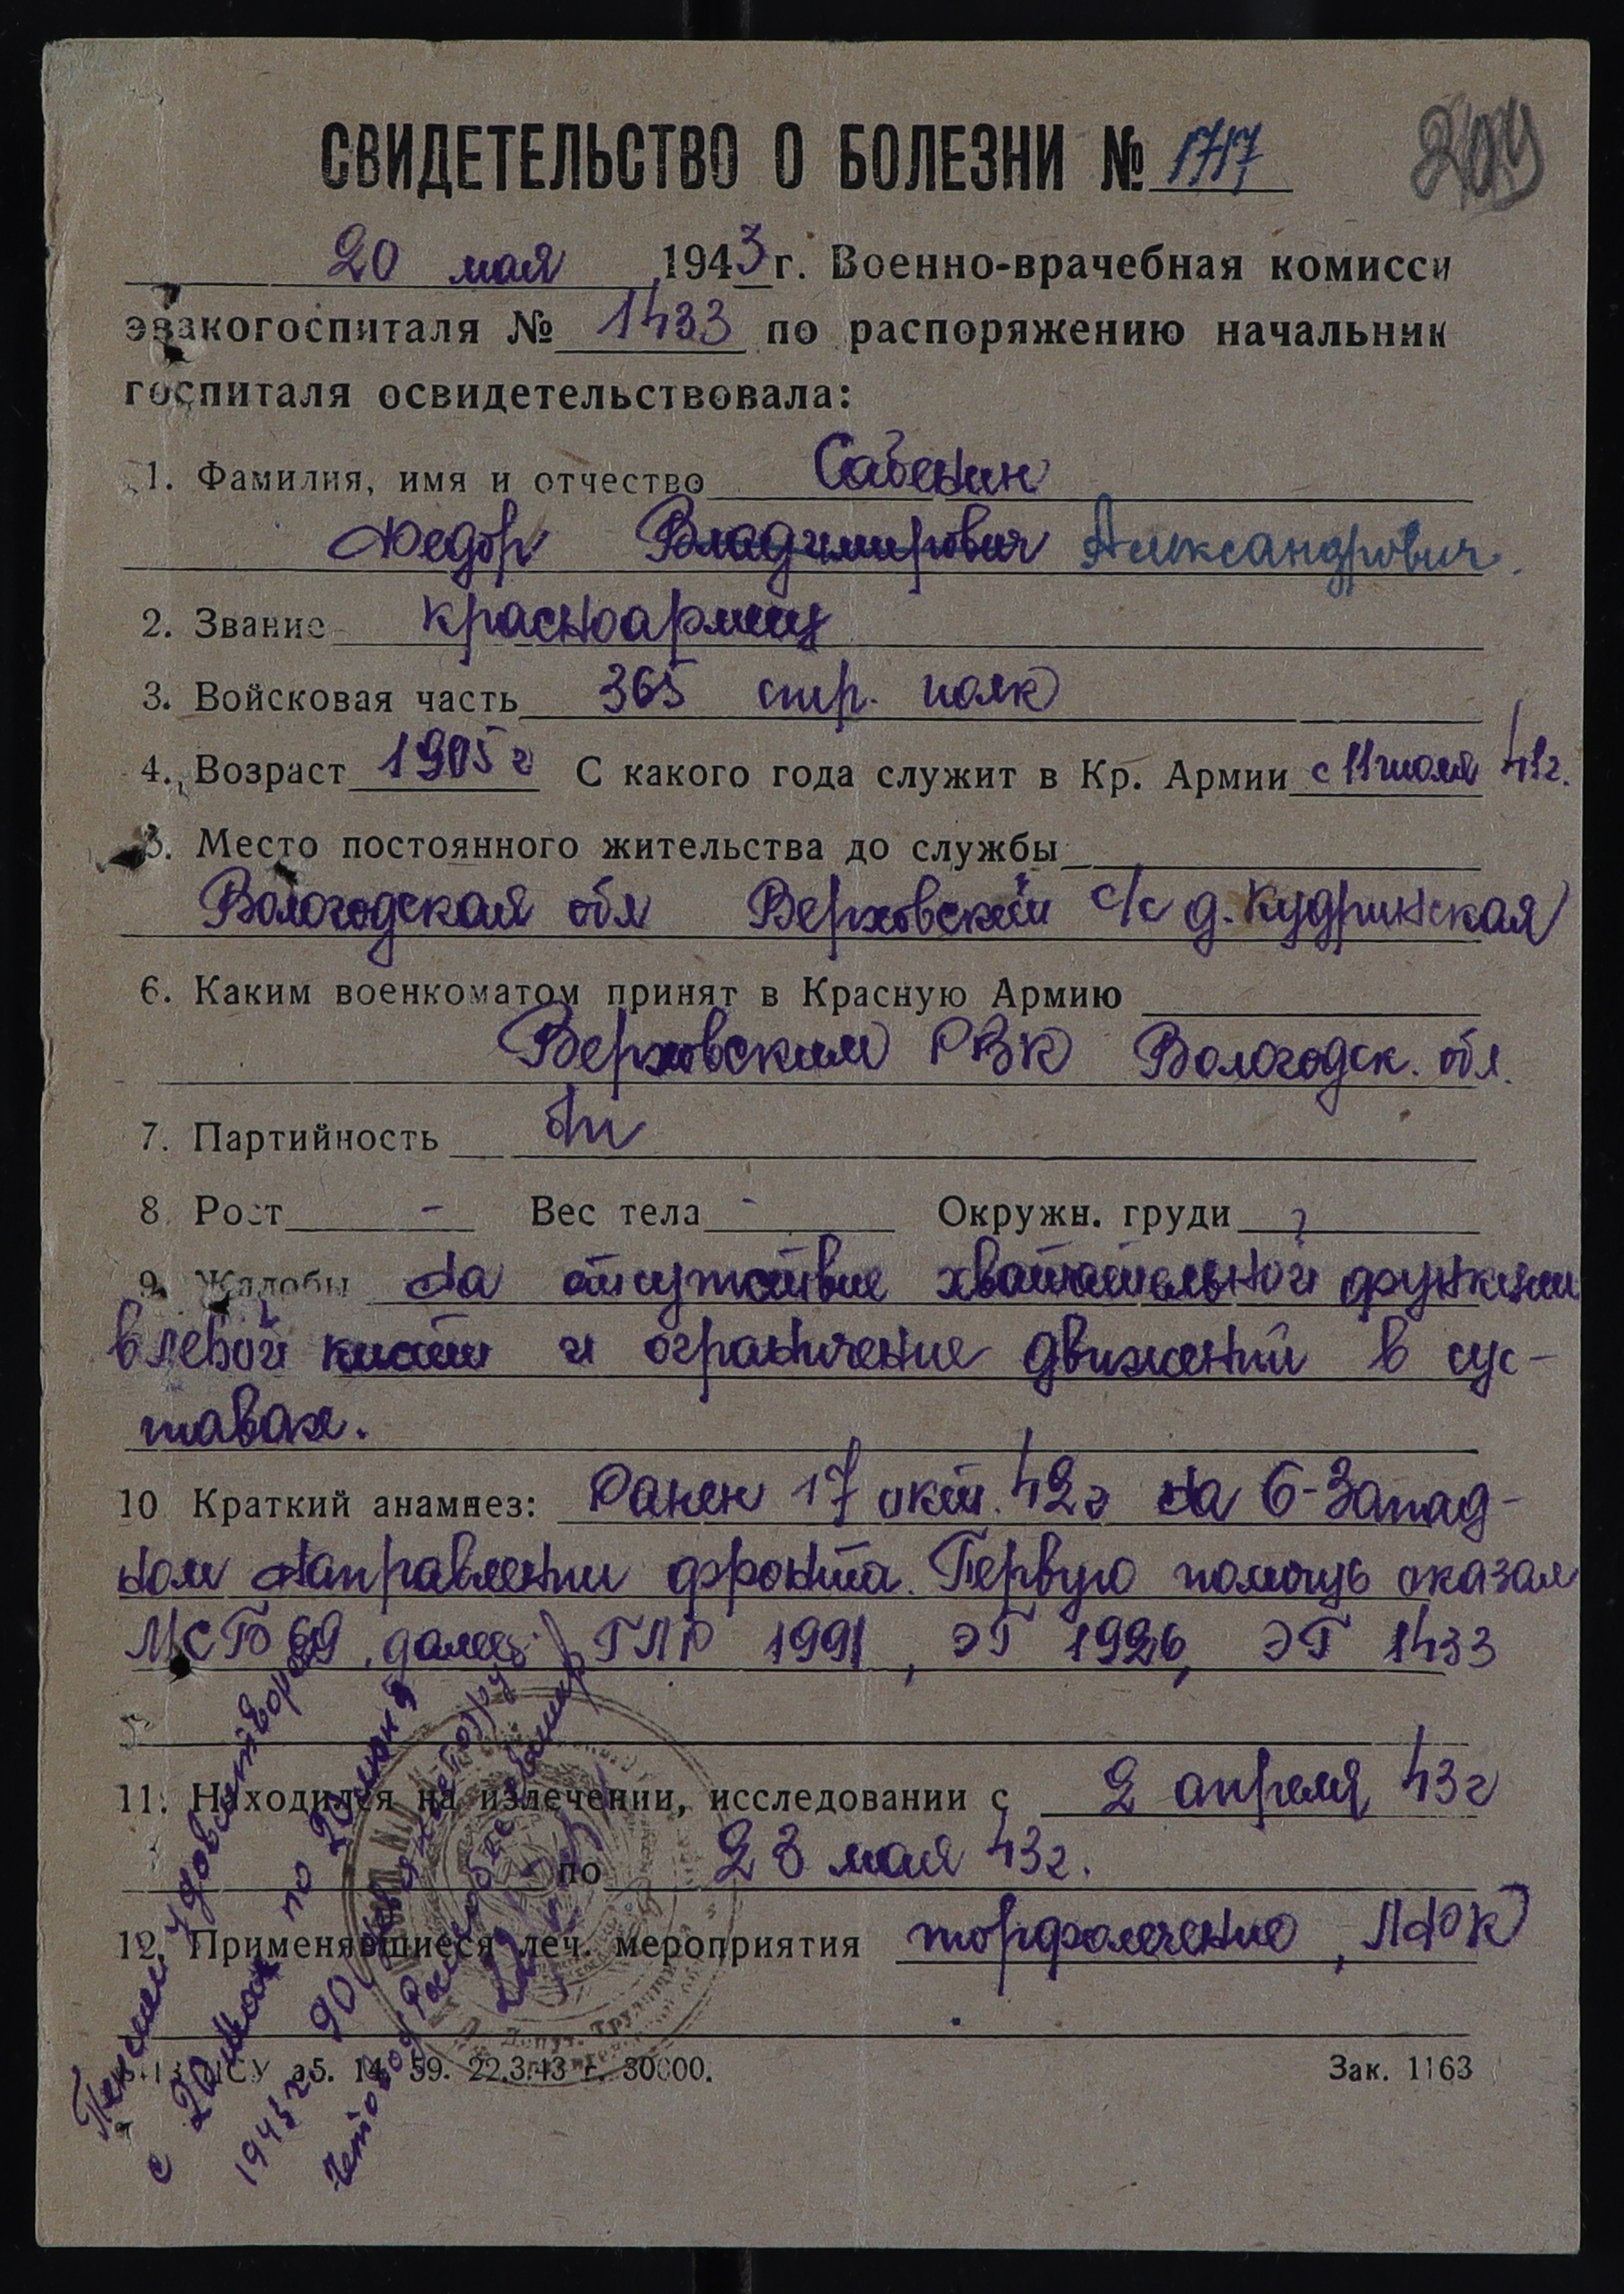 204
СВИДЕТЕЛЬСТВО О БОЛЕЗНИ № 1717
20 мая 1943 г. Военно-врачебная комисси
эвакогоспиталя № 1433 по распоряжению начальник
госпиталя освидетельствовала:
1. Фамилия, имя и отчество Сабенин
Федор Владимирович Александрович.
2. Звание красноармеец
3. Войсковая часть 365 стр. полк
4. Возраст 1905 г С какого года служит в Кр. Армии с 11 июля 41г.
5. Место постоянного жительства до службы
Вологодская обл Верховский с/с д. Кудринская
6. Каким военкоматом принят в Красную Армию
Верховским РВК Вологодск. обл.
7. Партийность б/п
8. Рост - Вес тела - Окружн. груди
9. Жалобы На отсутствие хватательной функции
в левой кисти и ограничение движений в сус-
тавах.
10 Краткий анамнез: Ранен 17 окт. 42г на С-Запад-
ном направлении фронта. Первую помощь оказал
МСБ 69, далее: ГЛР 1991, ЭГ 1926, ЭГ 1433
11. Находился на излечении, исследовании с 2 апреля 43г
по 23 мая 43г.
12. Применявшиеся леч. мероприятия торфолечение, ЛФК
22.3.43 г. 30000. Зак. 1163
Пенсией удовлетворен
с 20 мая по 20 июня
1943 г 90